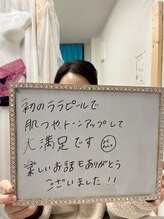 初のララピールで
肌つやトーンアップして
大満足です
楽しいお話もありがとう
ございました!!